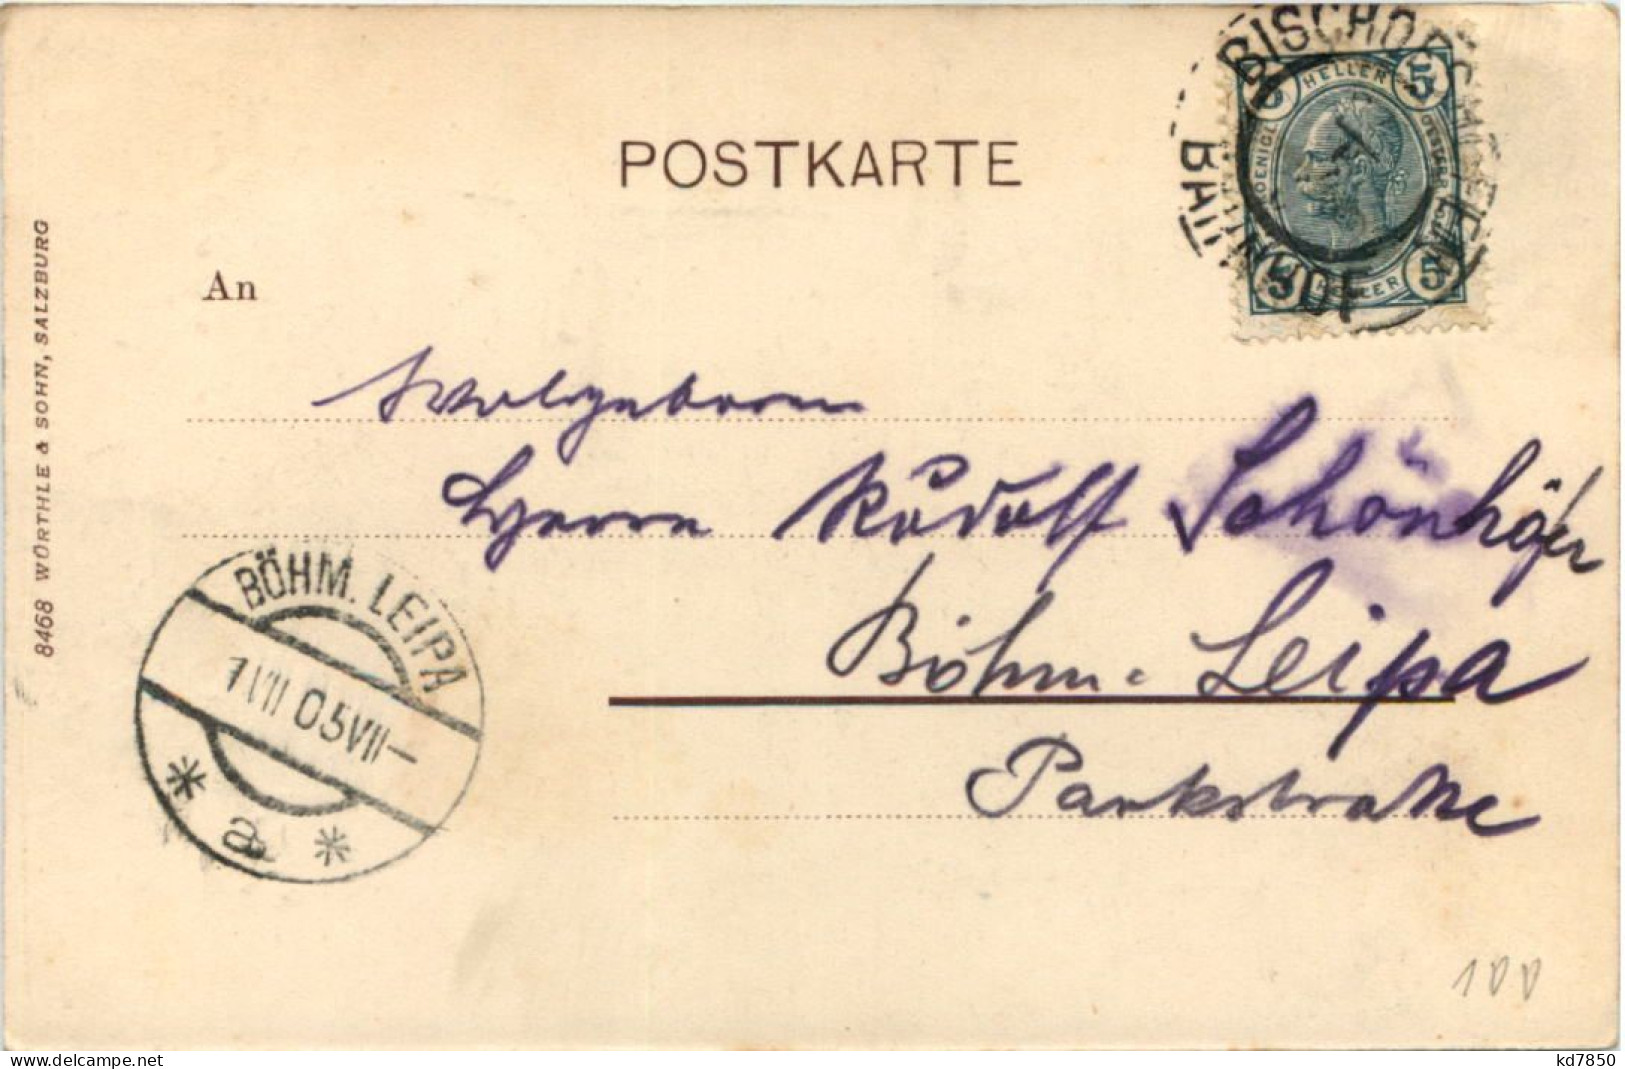 POSTKARTE
BISCHOFSHOFEN
BAHNHOF
HELLER
5 5
5 5
HELLER
An
Wolgeboren
Herrn Rudolf Schönhöfer
Böhm. Leipa
Parkstraße
BÖHM. LEIPA
1 VII 05 VII—
* a *
8468 WÜRTHLE & SOHN, SALZBURG
100
www.delcampe.net
kd7850